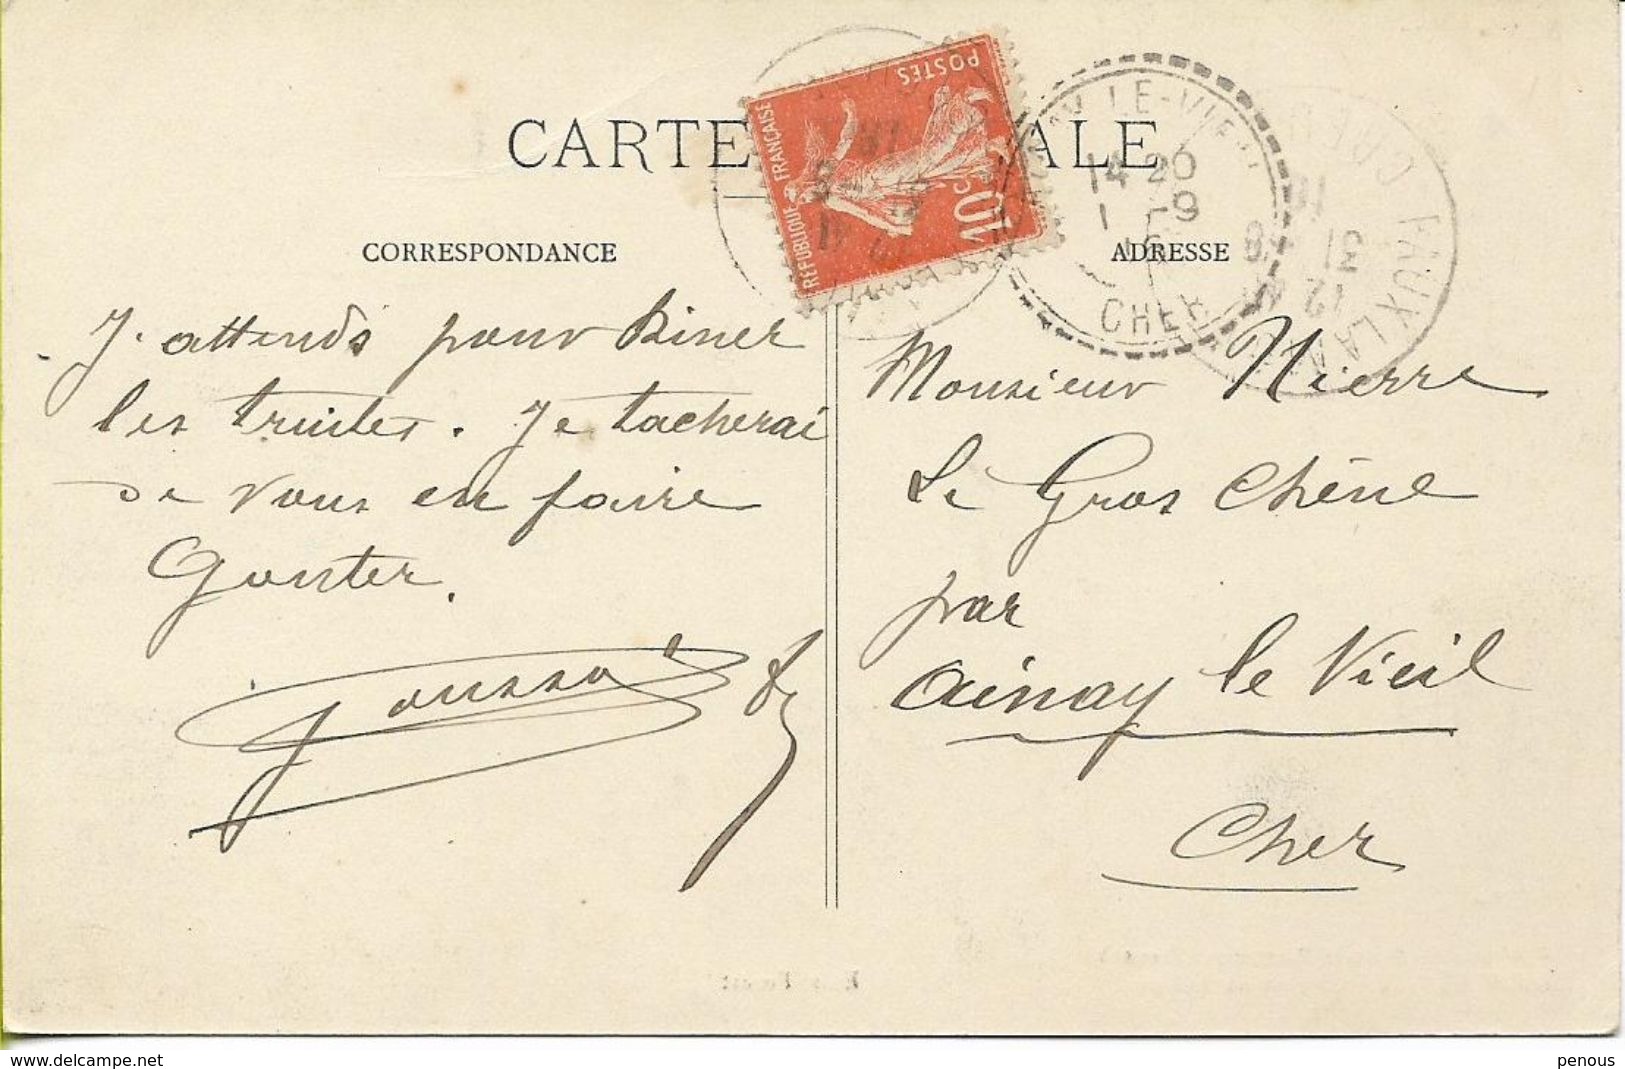 CARTE ALE
CORRESPONDANCE
ADRESSE
POSTES
REPUBLIQUE FRANÇAISE
10c
LE-VIEIL
14 20
1 -9
CHER
FAUX LA
31 8
12
J. attends pour Biner
les truites. Je tacherai
de vous en faire
Gouter.
Monsieur Nierre
Le Gros Chêne
par
Ainay le Vieil
Cher
www.delcampe.net
penous